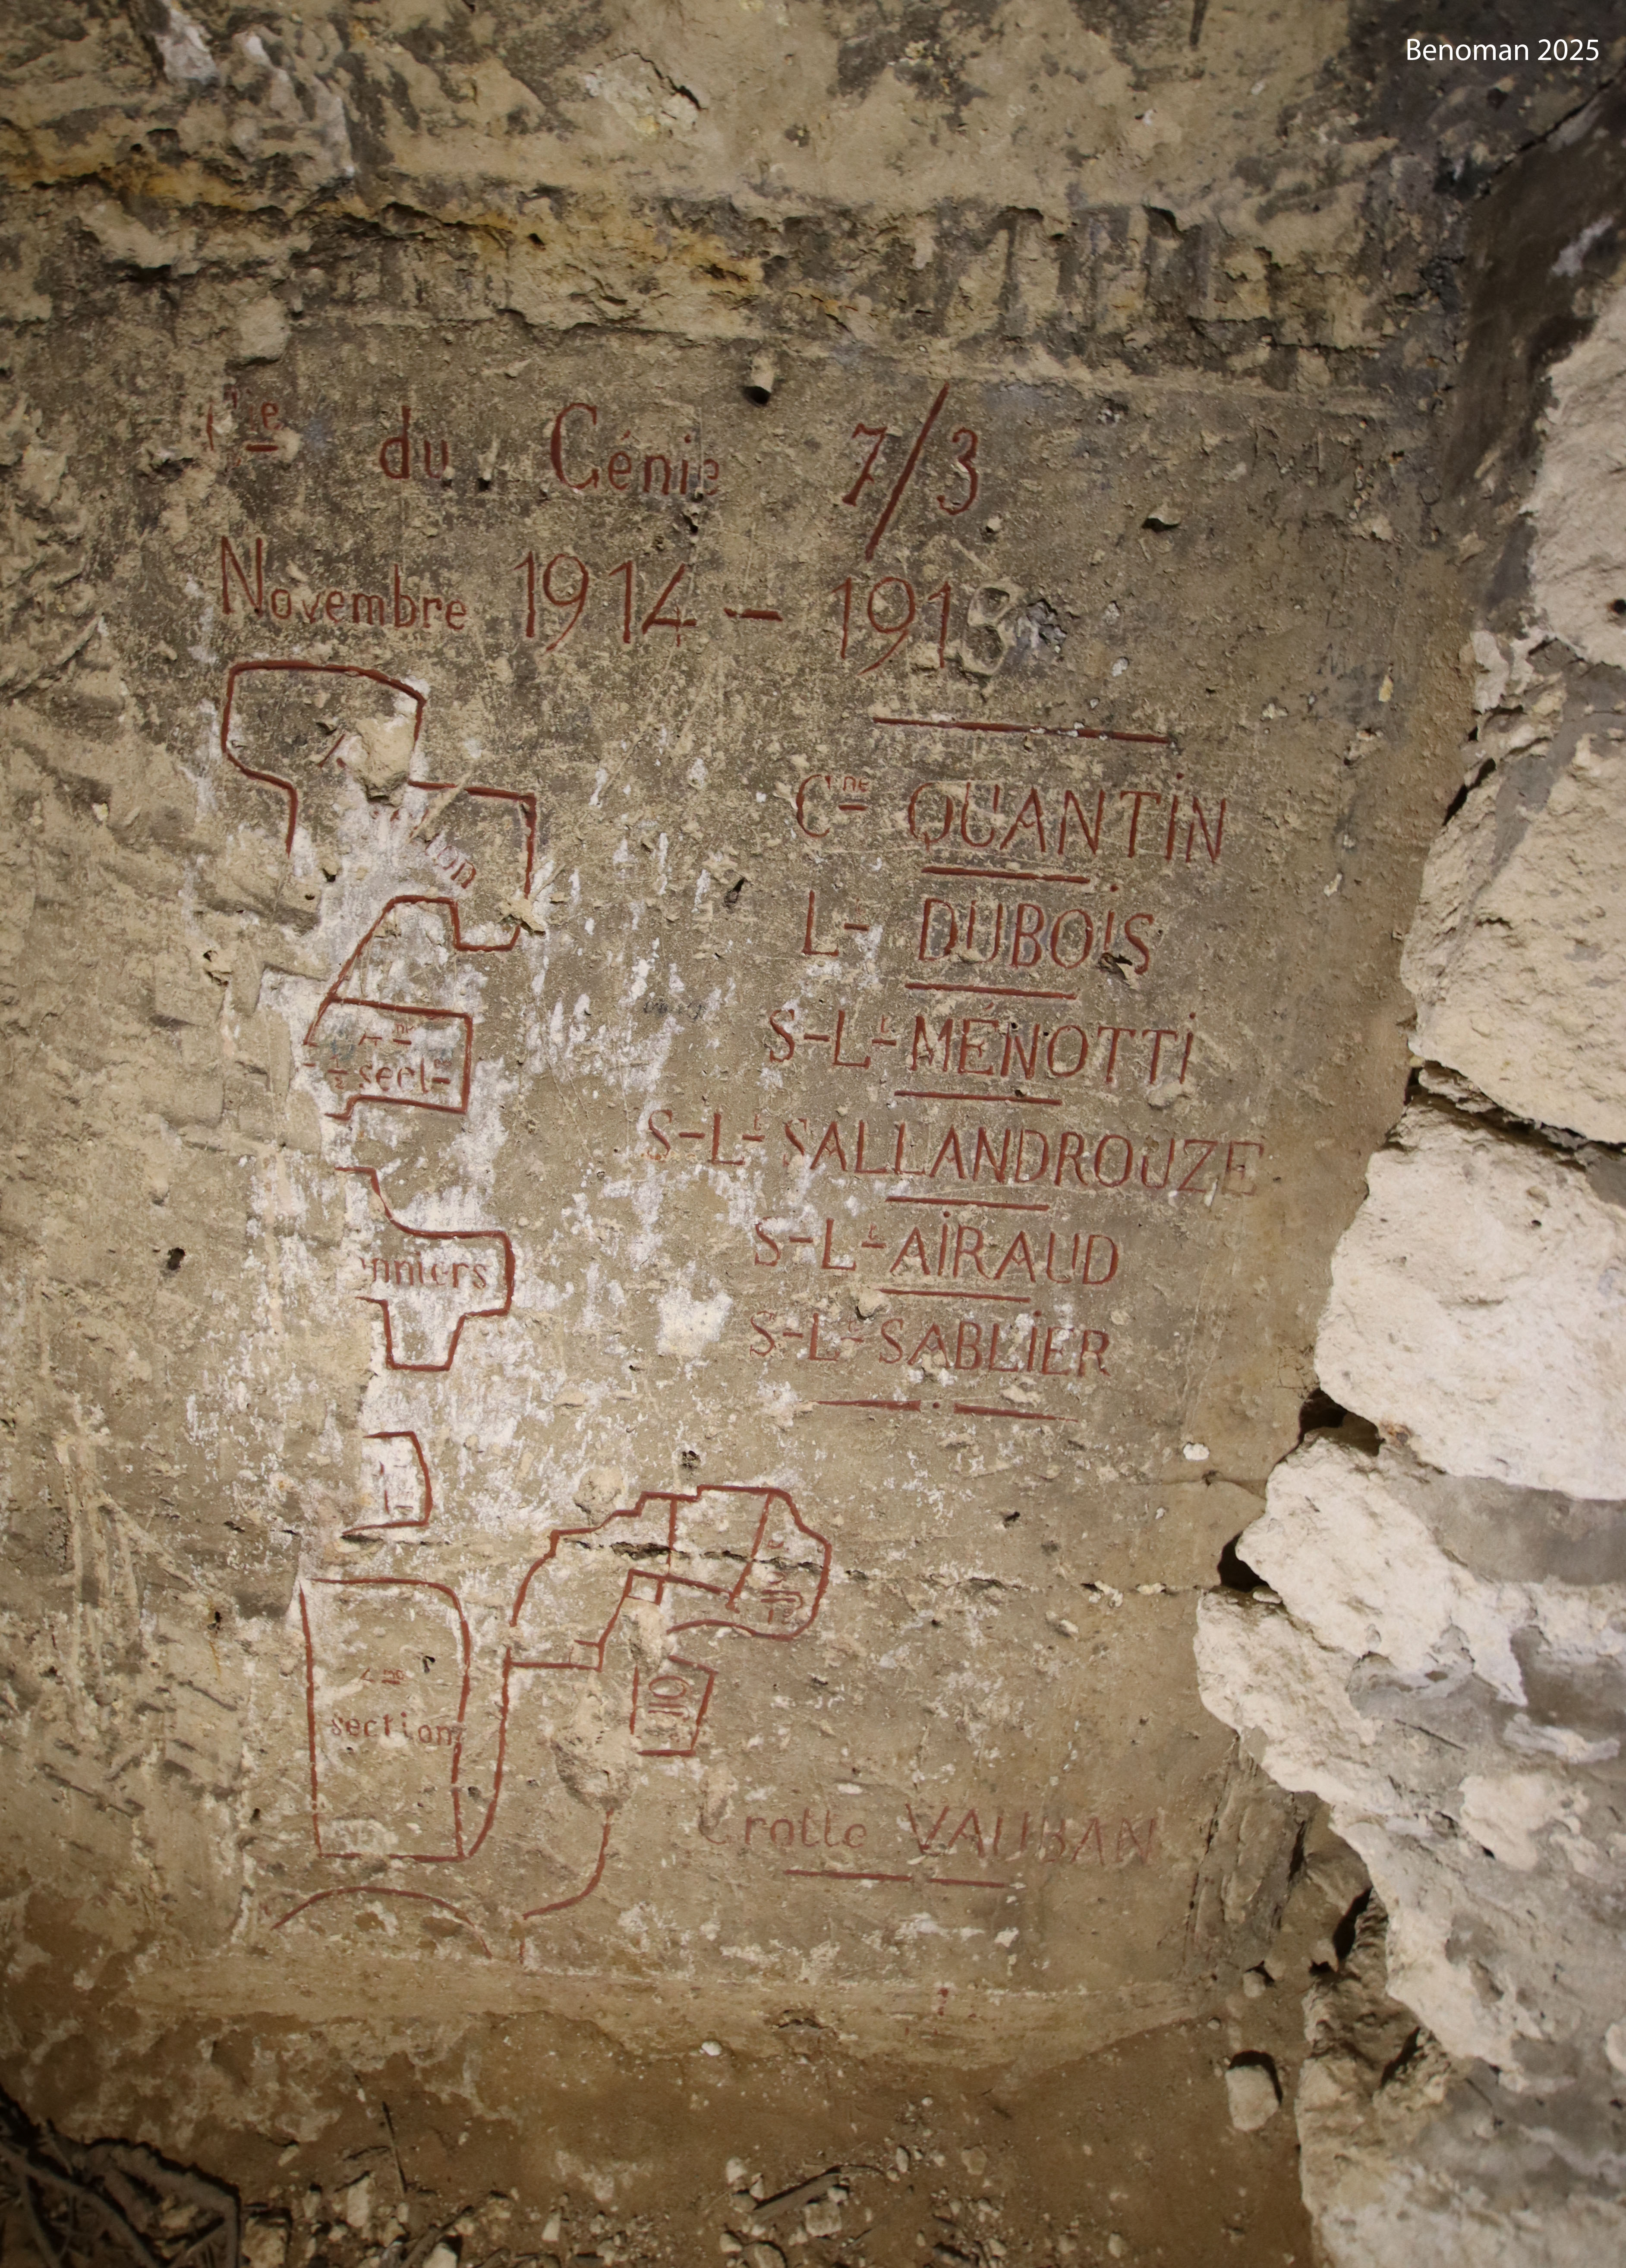 Benoman 2025
Cie du Génie 7/3
Novembre 1914 – 1918
Cne QUANTIN
Lt DUBOIS
S-Lt MÉNOTTI
S-Lt SALLANDROUZE
S-Lt AIRAUD
S-Lt SABLIER
sect
nniers
section
Grotte VAUBAN